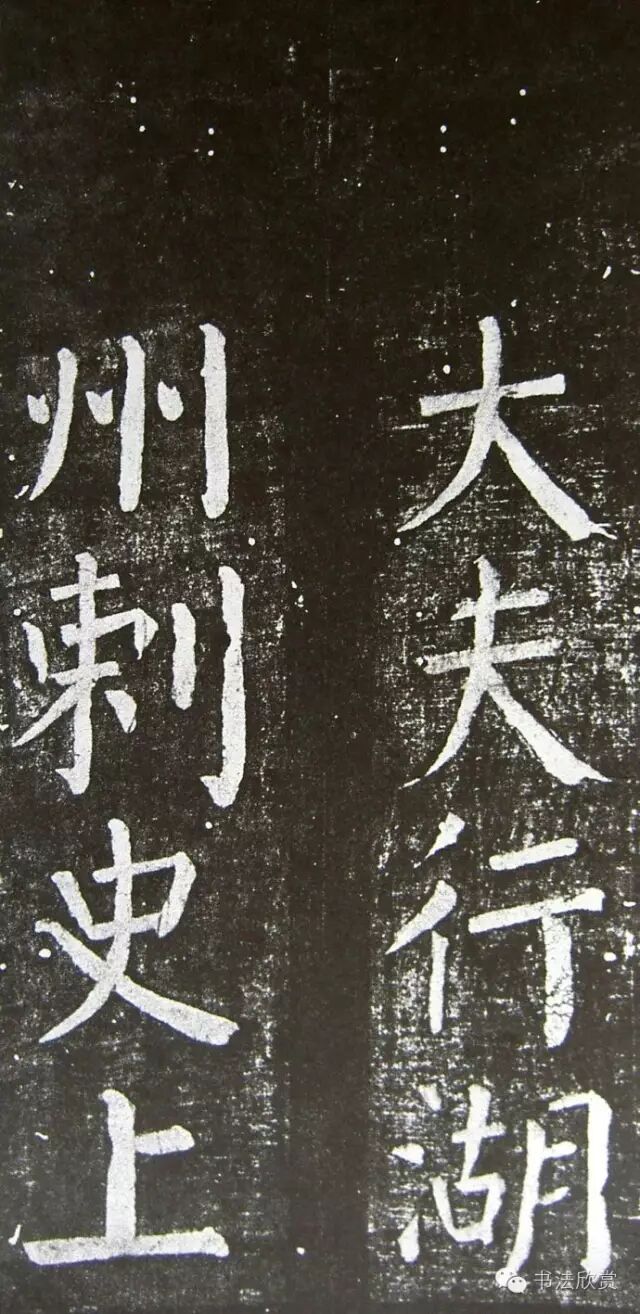 大夫行湖
州刺史上
书法欣赏